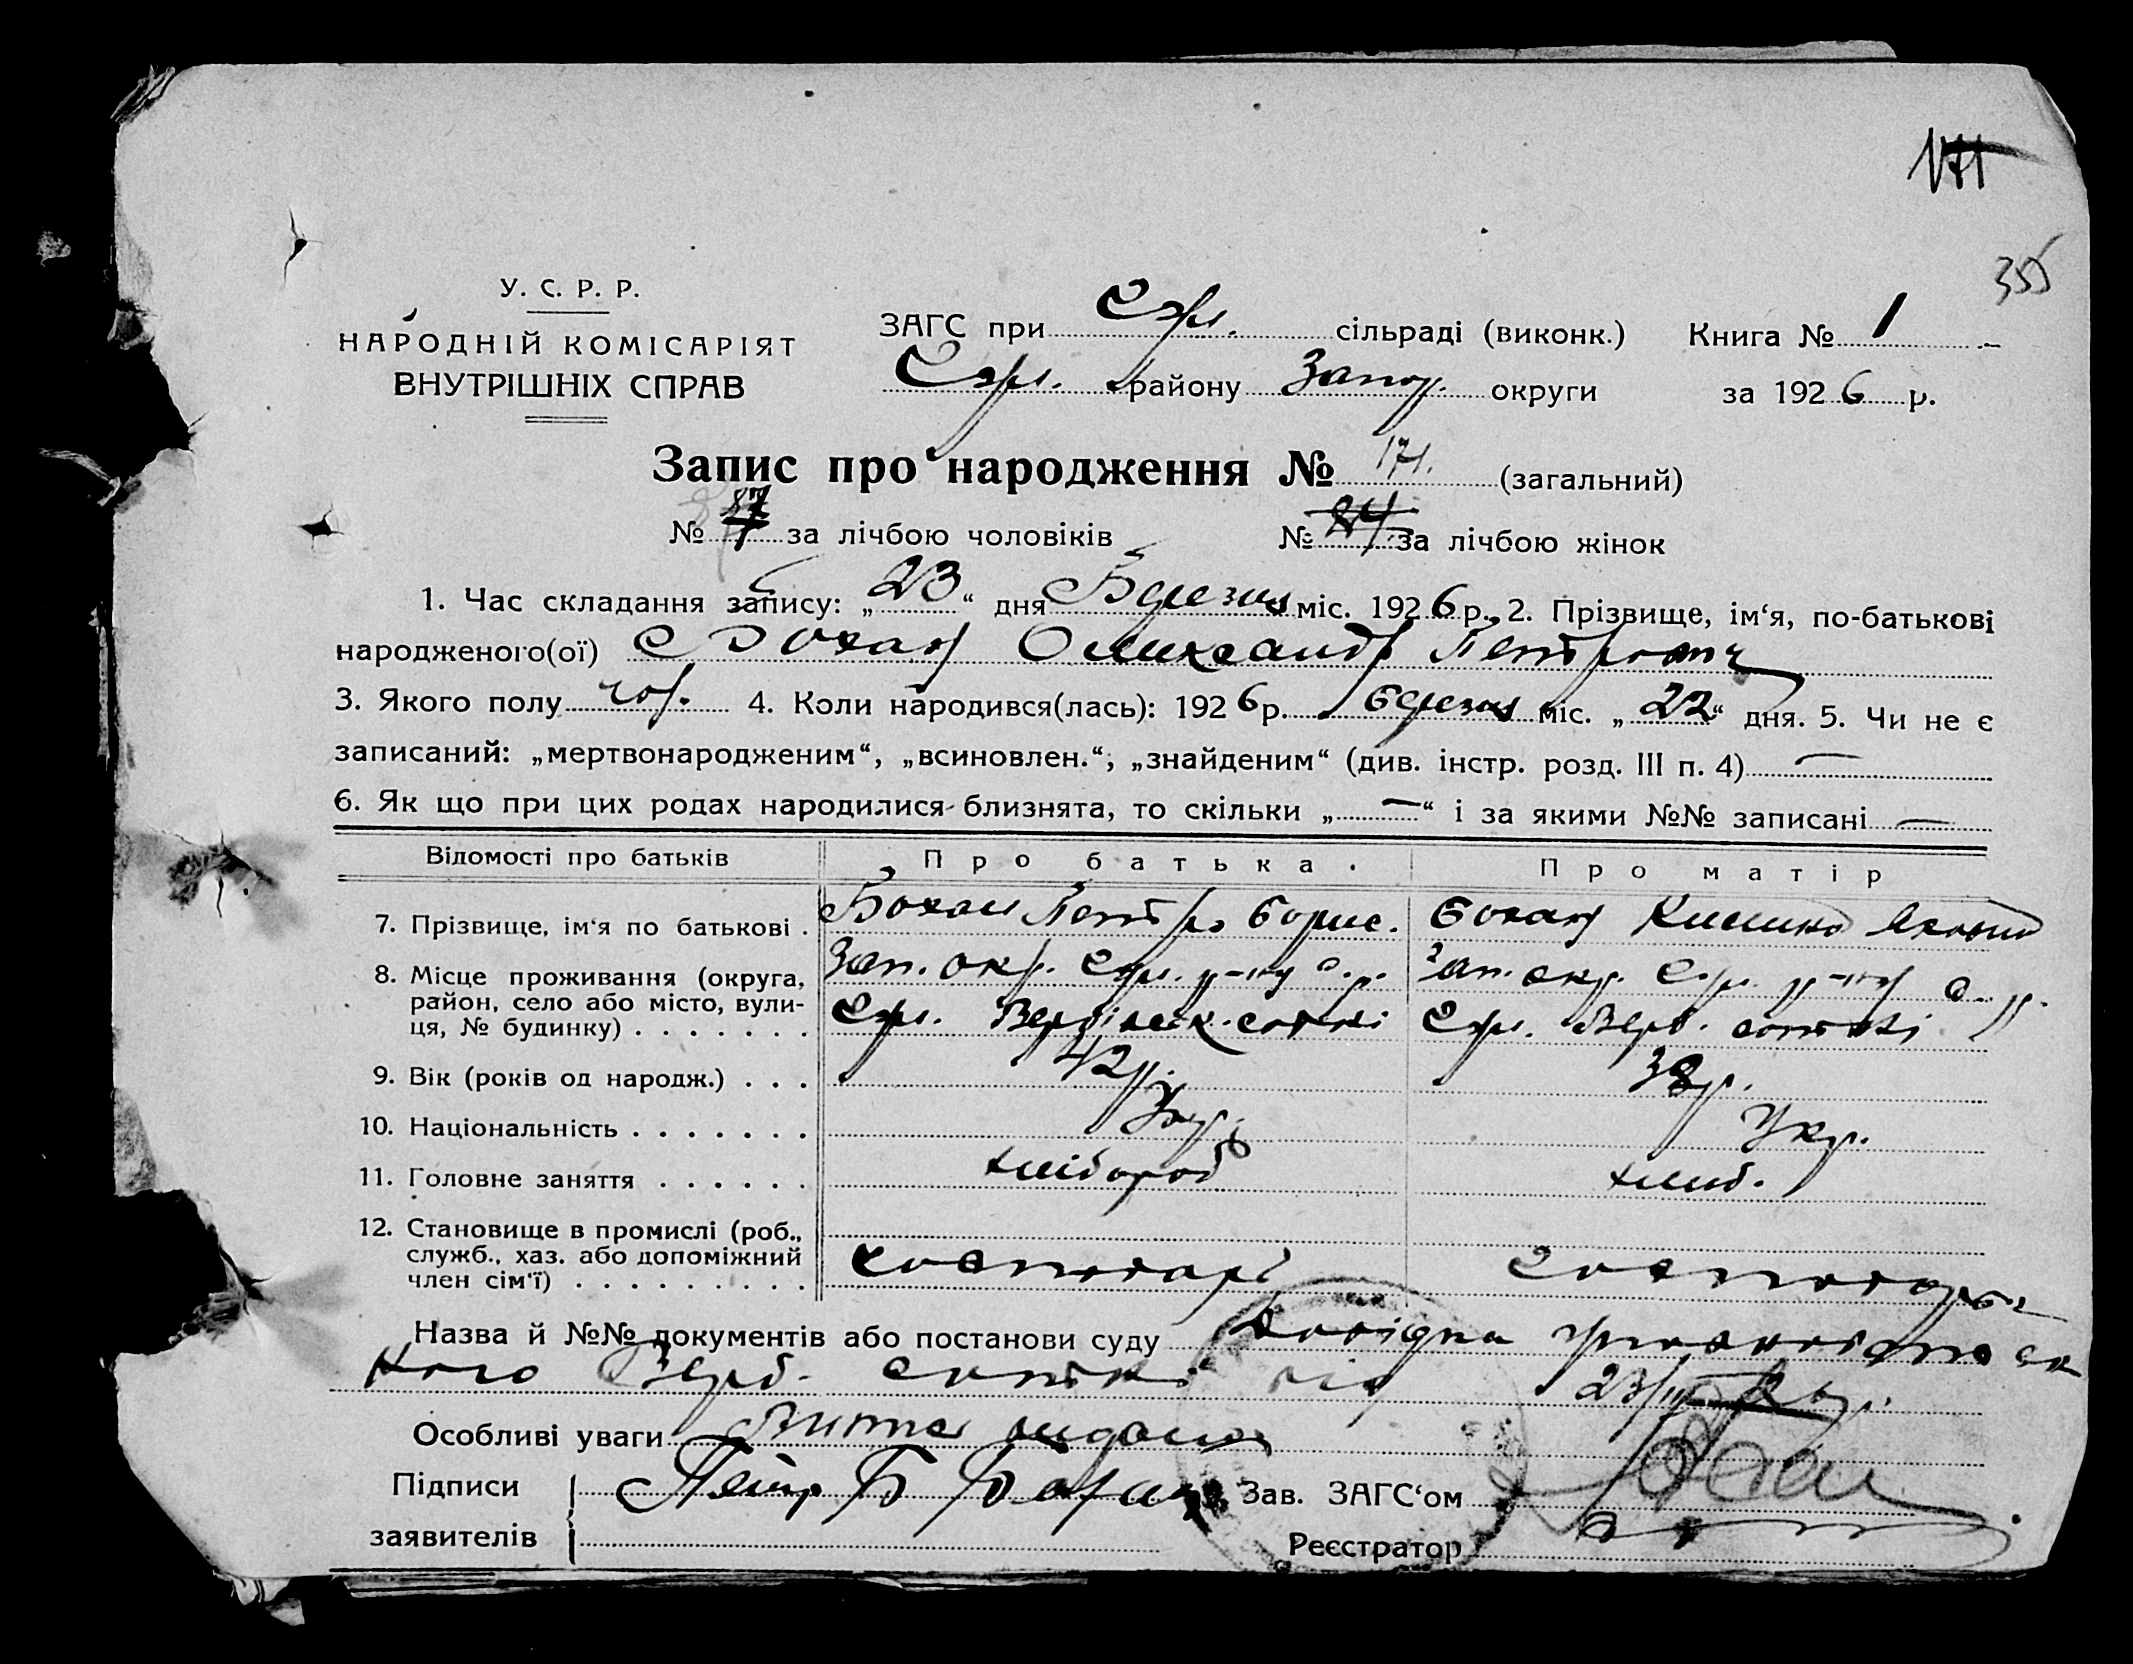 171
355
У. С. Р. Р.
НАРОДНІЙ КОМІСАРІЯТ
ВНУТРІШНІХ СПРАВ
ЗАГС при сільраді (виконк.) Книга № 1
району Запор. округи за 1926 р.
Запис про народження № 171. (загальний)
№ 87 за лічбою чоловіків № 84 за лічбою жінок
1. Час складання запису: „23“ дня Березня міс. 1926 р. 2. Прізвище, ім‘я, по-батькові
народженого(ої) Бохан Олександр Петрович
3. Якого полу чол. 4. Коли народився(лась): 1926 р. березня міс. „22“ дня. 5. Чи не є
записаний: „мертвонародженим“, „всиновлен.“, „знайденим“ (див. інстр. розд. III п. 4) —
6. Як що при цих родах народилися близнята, то скільки „—“ і за якими №№ записані —
Відомості про батьків Про батька. Про матір
7. Прізвище, ім‘я по батькові . Бохан Петро Борис. Бохан Якович
8. Місце проживання (округа, Зап. окр. р-ну с. р. Зап. окр. р-ну с. р.
район, село або місто, вули-
ця, № будинку) . . . . . . . сотні Верб. сотні
9. Вік (років од народж.) . . . 42 р. 38 р.
10. Національність . . . . . . . Укр. Укр.
11. Головне заняття . . . . . . хлібороб хліб.
12. Становище в промислі (роб.,
служб., хаз. або допоміжний
член сім‘ї) . . . . . . . . . господарь господарь
Назва й №№ документів або постанови суду Довідка уповноваженого
Верб. сотні від 23/III 26 р.
Особливі уваги Витяг видано
Підписи Петр Б Бохан Зав. ЗАГС‘ом
заявителів Реєстратор